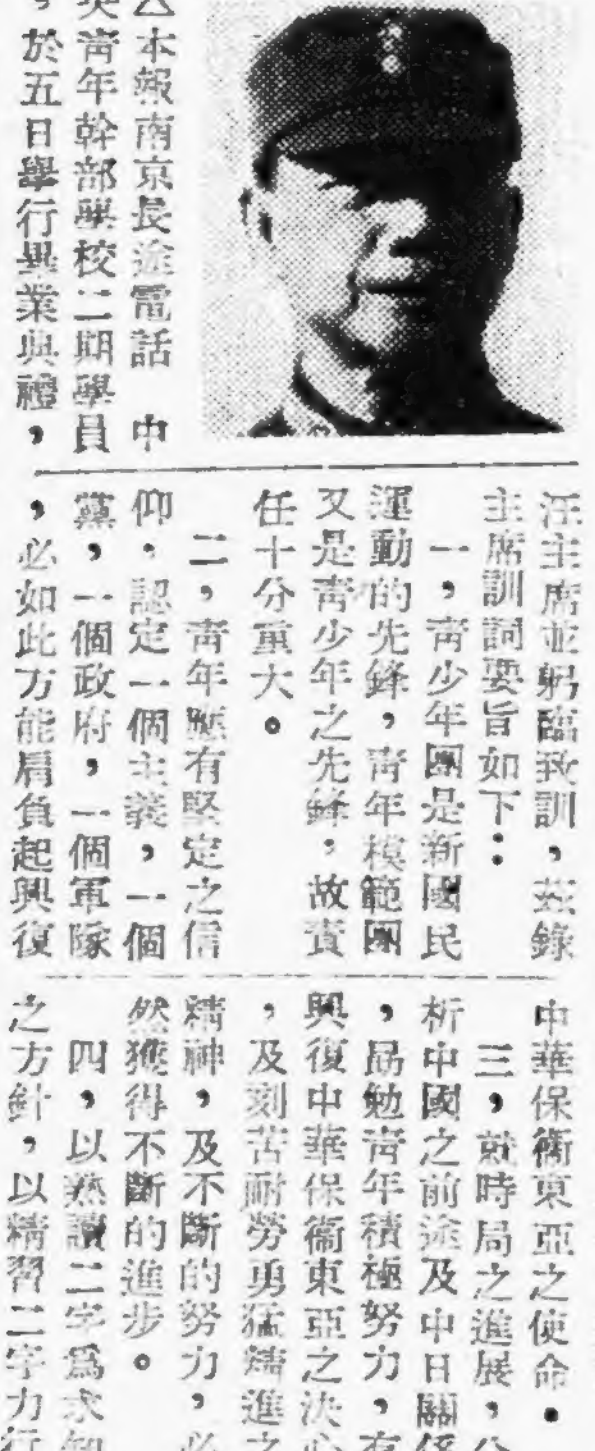 本報南京長途電話　中
央青年幹部學校二期學員
，於五日舉行畢業典禮，
汪主席並躬臨致訓，茲錄
主席訓詞要旨如下：
一，青少年團是新國民
運動的先鋒，青年模範團
又是青少年之先鋒，故責
任十分重大。
二，青年應有堅定之信
仰，認定一個主義，一個
黨，一個政府，一個軍隊
，必如此方能肩負起興復
中華保衞東亞之使命。
三，就時局之進展，分
析中國之前途及中日關係
，勗勉青年積極努力，有
興復中華保衞東亞之決心
，及刻苦耐勞勇猛精進之
精神，及不斷的努力，必
然獲得不斷的進步。
四，以熟讀二字爲求知
之方針，以精習二字力行